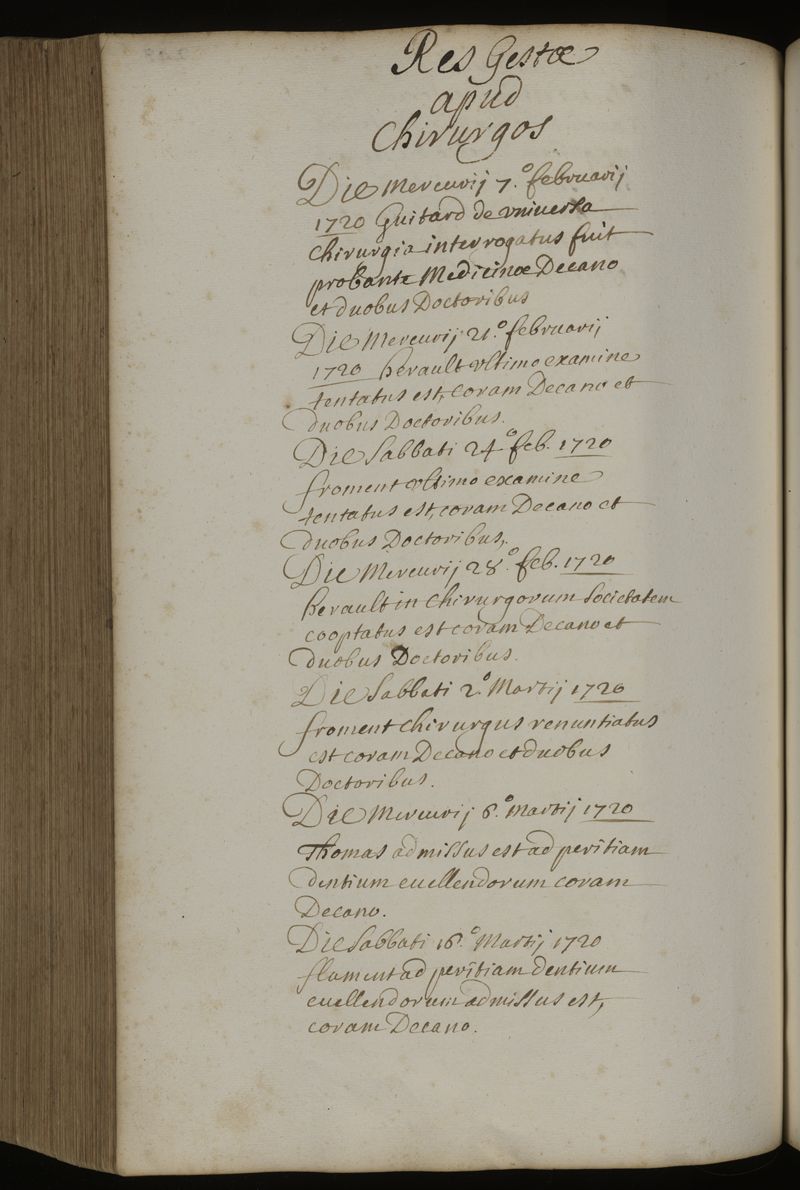 Res Gestæ
apud
Chirurgos
Die Mercurij 7.º februarij
1720 Guitard de vniversa
Chirurgia interrogatus fuit
probante Medicinæ Decano
et duobus Doctoribus
Die Mercurij 21.º februarij
1720 herault vltimo examine
tentatus est, coram Decano et
duobus Doctoribus.
Die Sabbati 24º feb. 1720
froment vltimo examine
tentatus est, coram Decano et
duobus Doctoribus,.
Die Mercurij 28.º feb. 1720
herault in Chirurgorum Societatem
cooptatus est coram Decano et
duobus Doctoribus.
Die Sabbati 2.º Martij 1720
froment Chirurgus renuntiatus
est coram Decano et duobus
Doctoribus.
Die Mercurij 6.º Martij 1720
Thomas admissus est ad peritiam
dentium euellendorum coram
Decano.
Die Sabbati 16.º Martij 1720
flament ad peritiam dentium
euellendorum admissus est,
coram Decano.